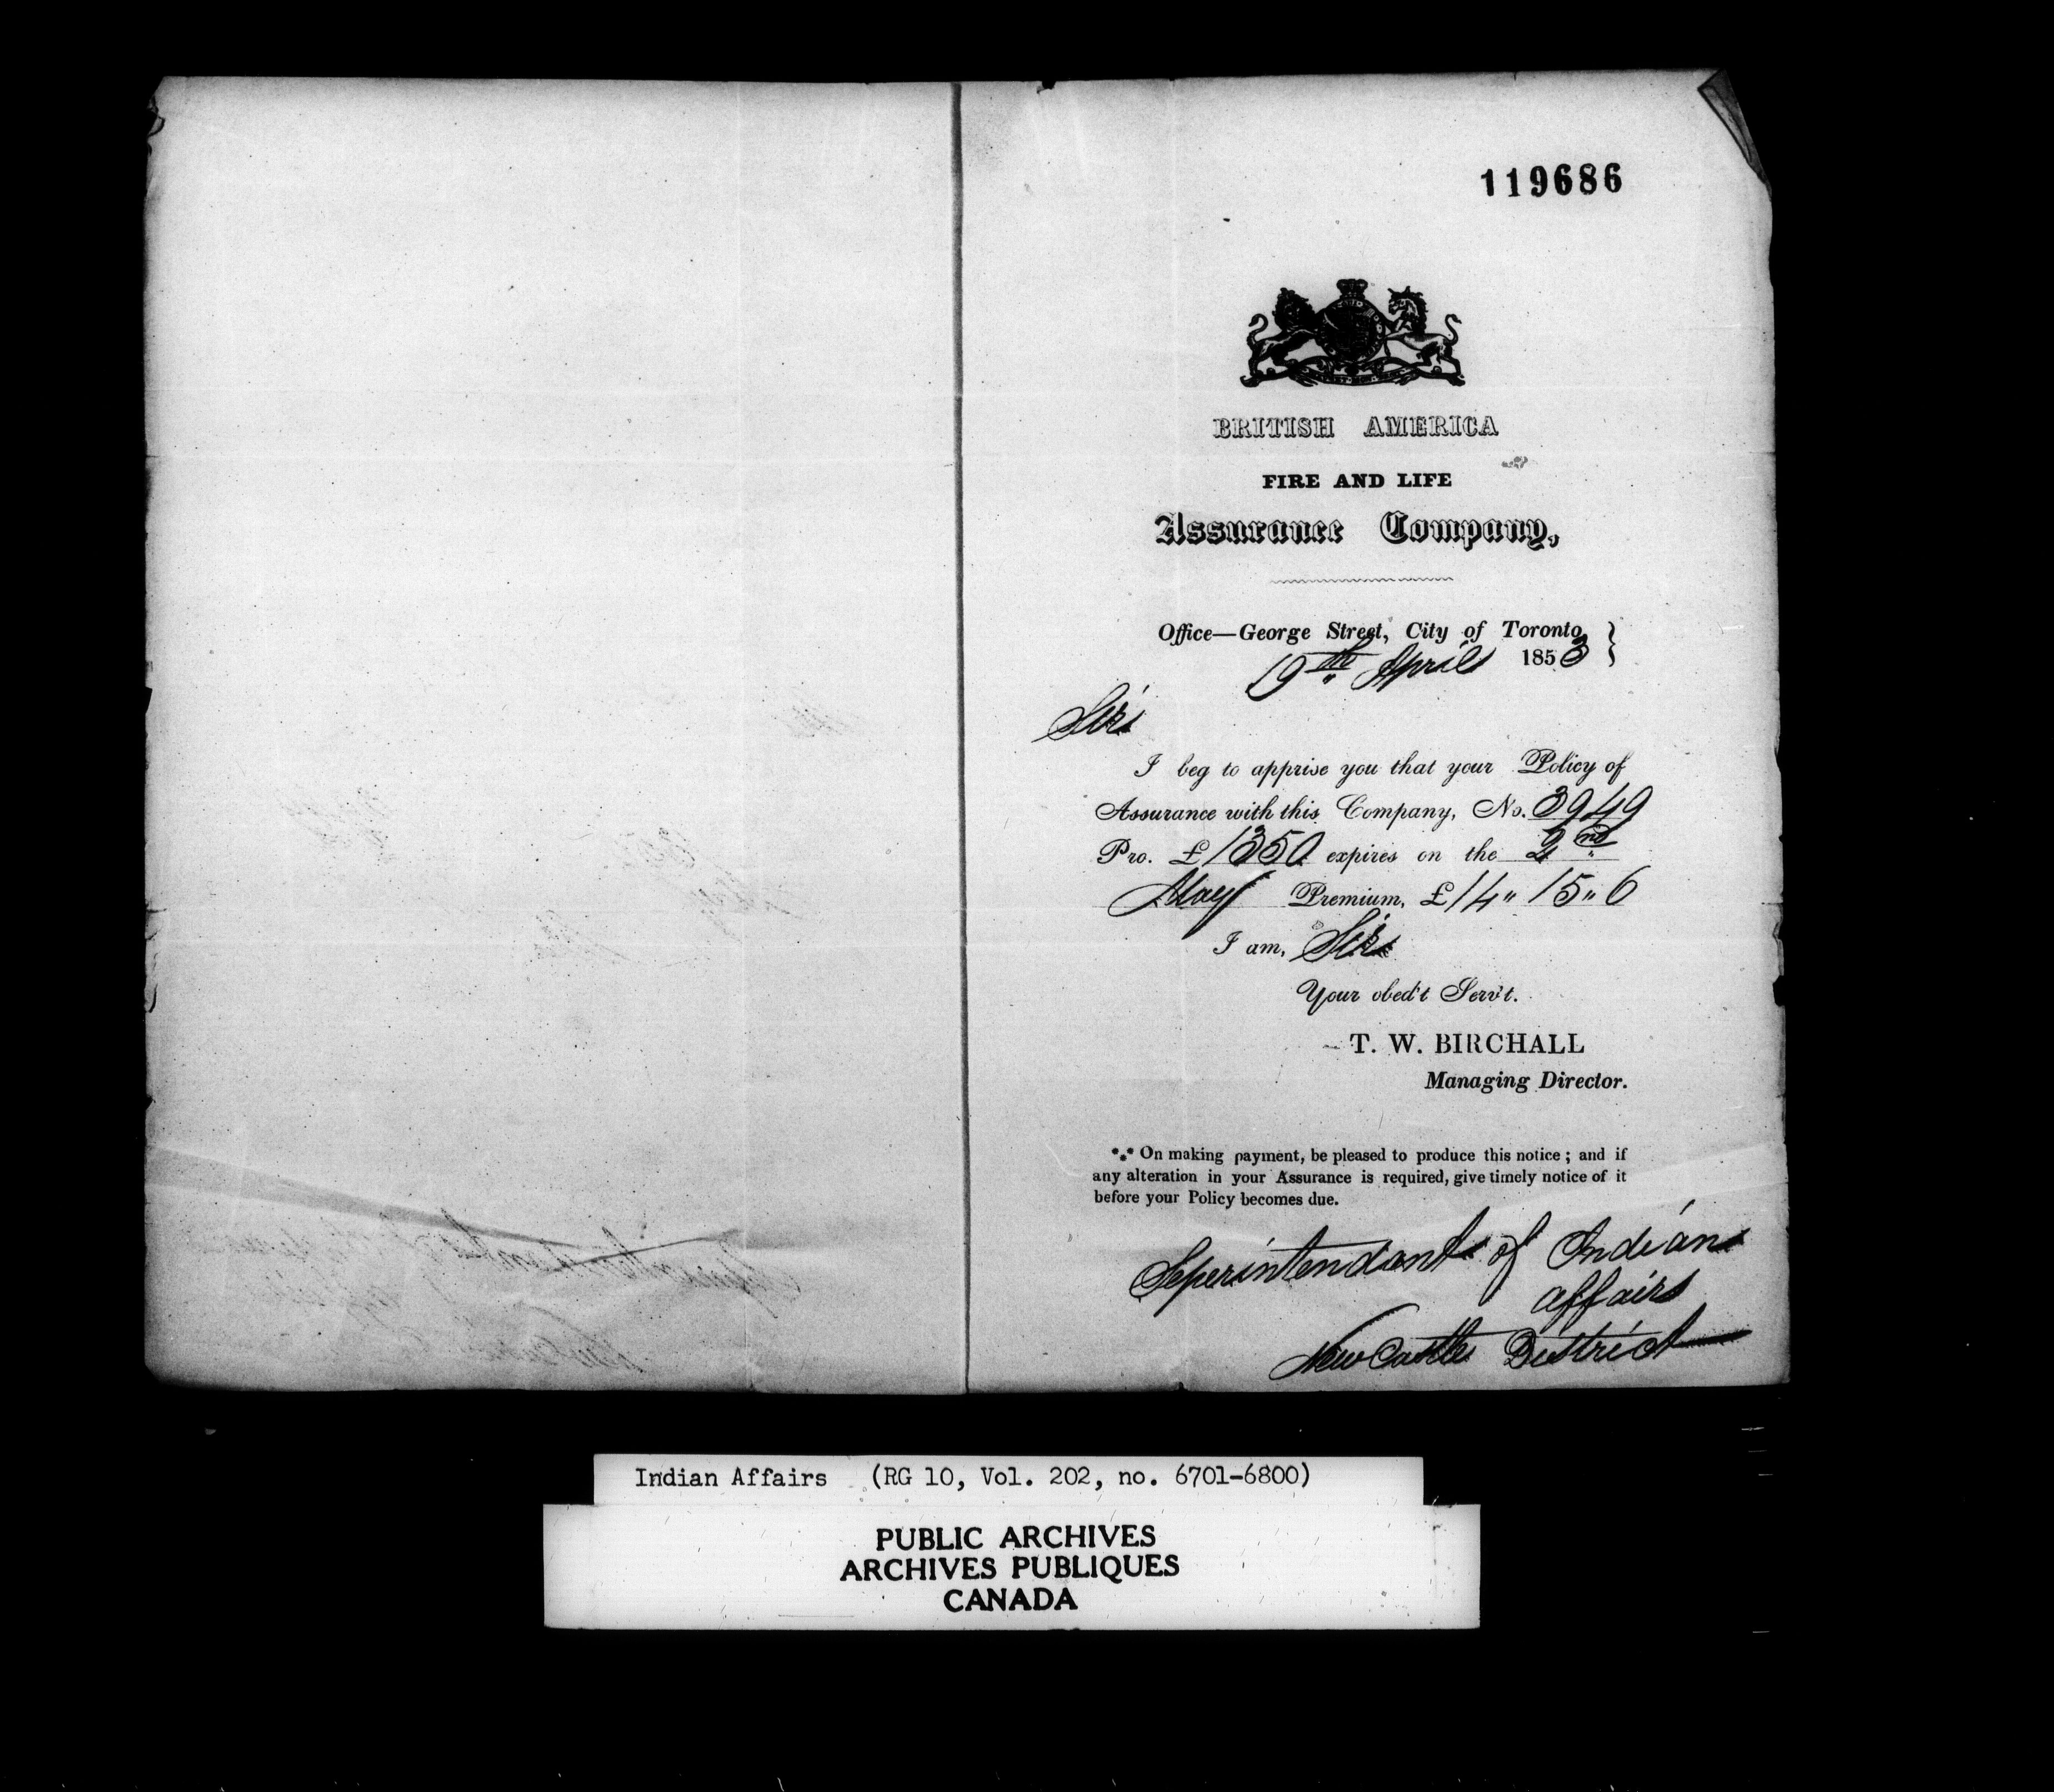 119686
BRITISH AMERICA
FIRE AND LIFE
Assurance Company,
Office—George Street, City of Toronto,
19th April 1853
Sir
I beg to apprise you that your Policy of
Assurance with this Company, No. 3949
Pro. £1350 expires on the 2nd
May Premium, £14" 15" 6
I am, Sir
Your obed't Serv't.
T. W. BIRCHALL
Managing Director.
*⁎* On making payment, be pleased to produce this notice; and if
any alteration in your Assurance is required, give timely notice of it
before your Policy becomes due.
Seperintendant of Indian
affairs
New Castle District
Indian Affairs (RG 10, Vol. 202, no. 6701-6800)
PUBLIC ARCHIVES
ARCHIVES PUBLIQUES
CANADA